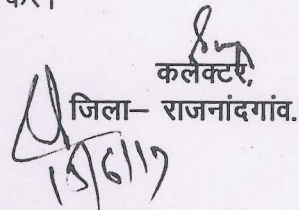 करें।
कलेक्टर,
जिला– राजनांदगांव.
15/6/17